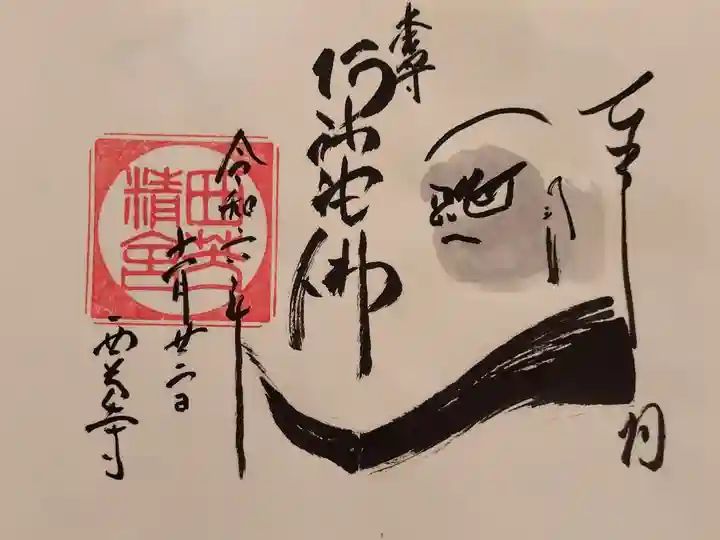 奉拝
本尊
阿弥陀佛
令和六年
十一月廿二日
西芳寺
西芳
精舎